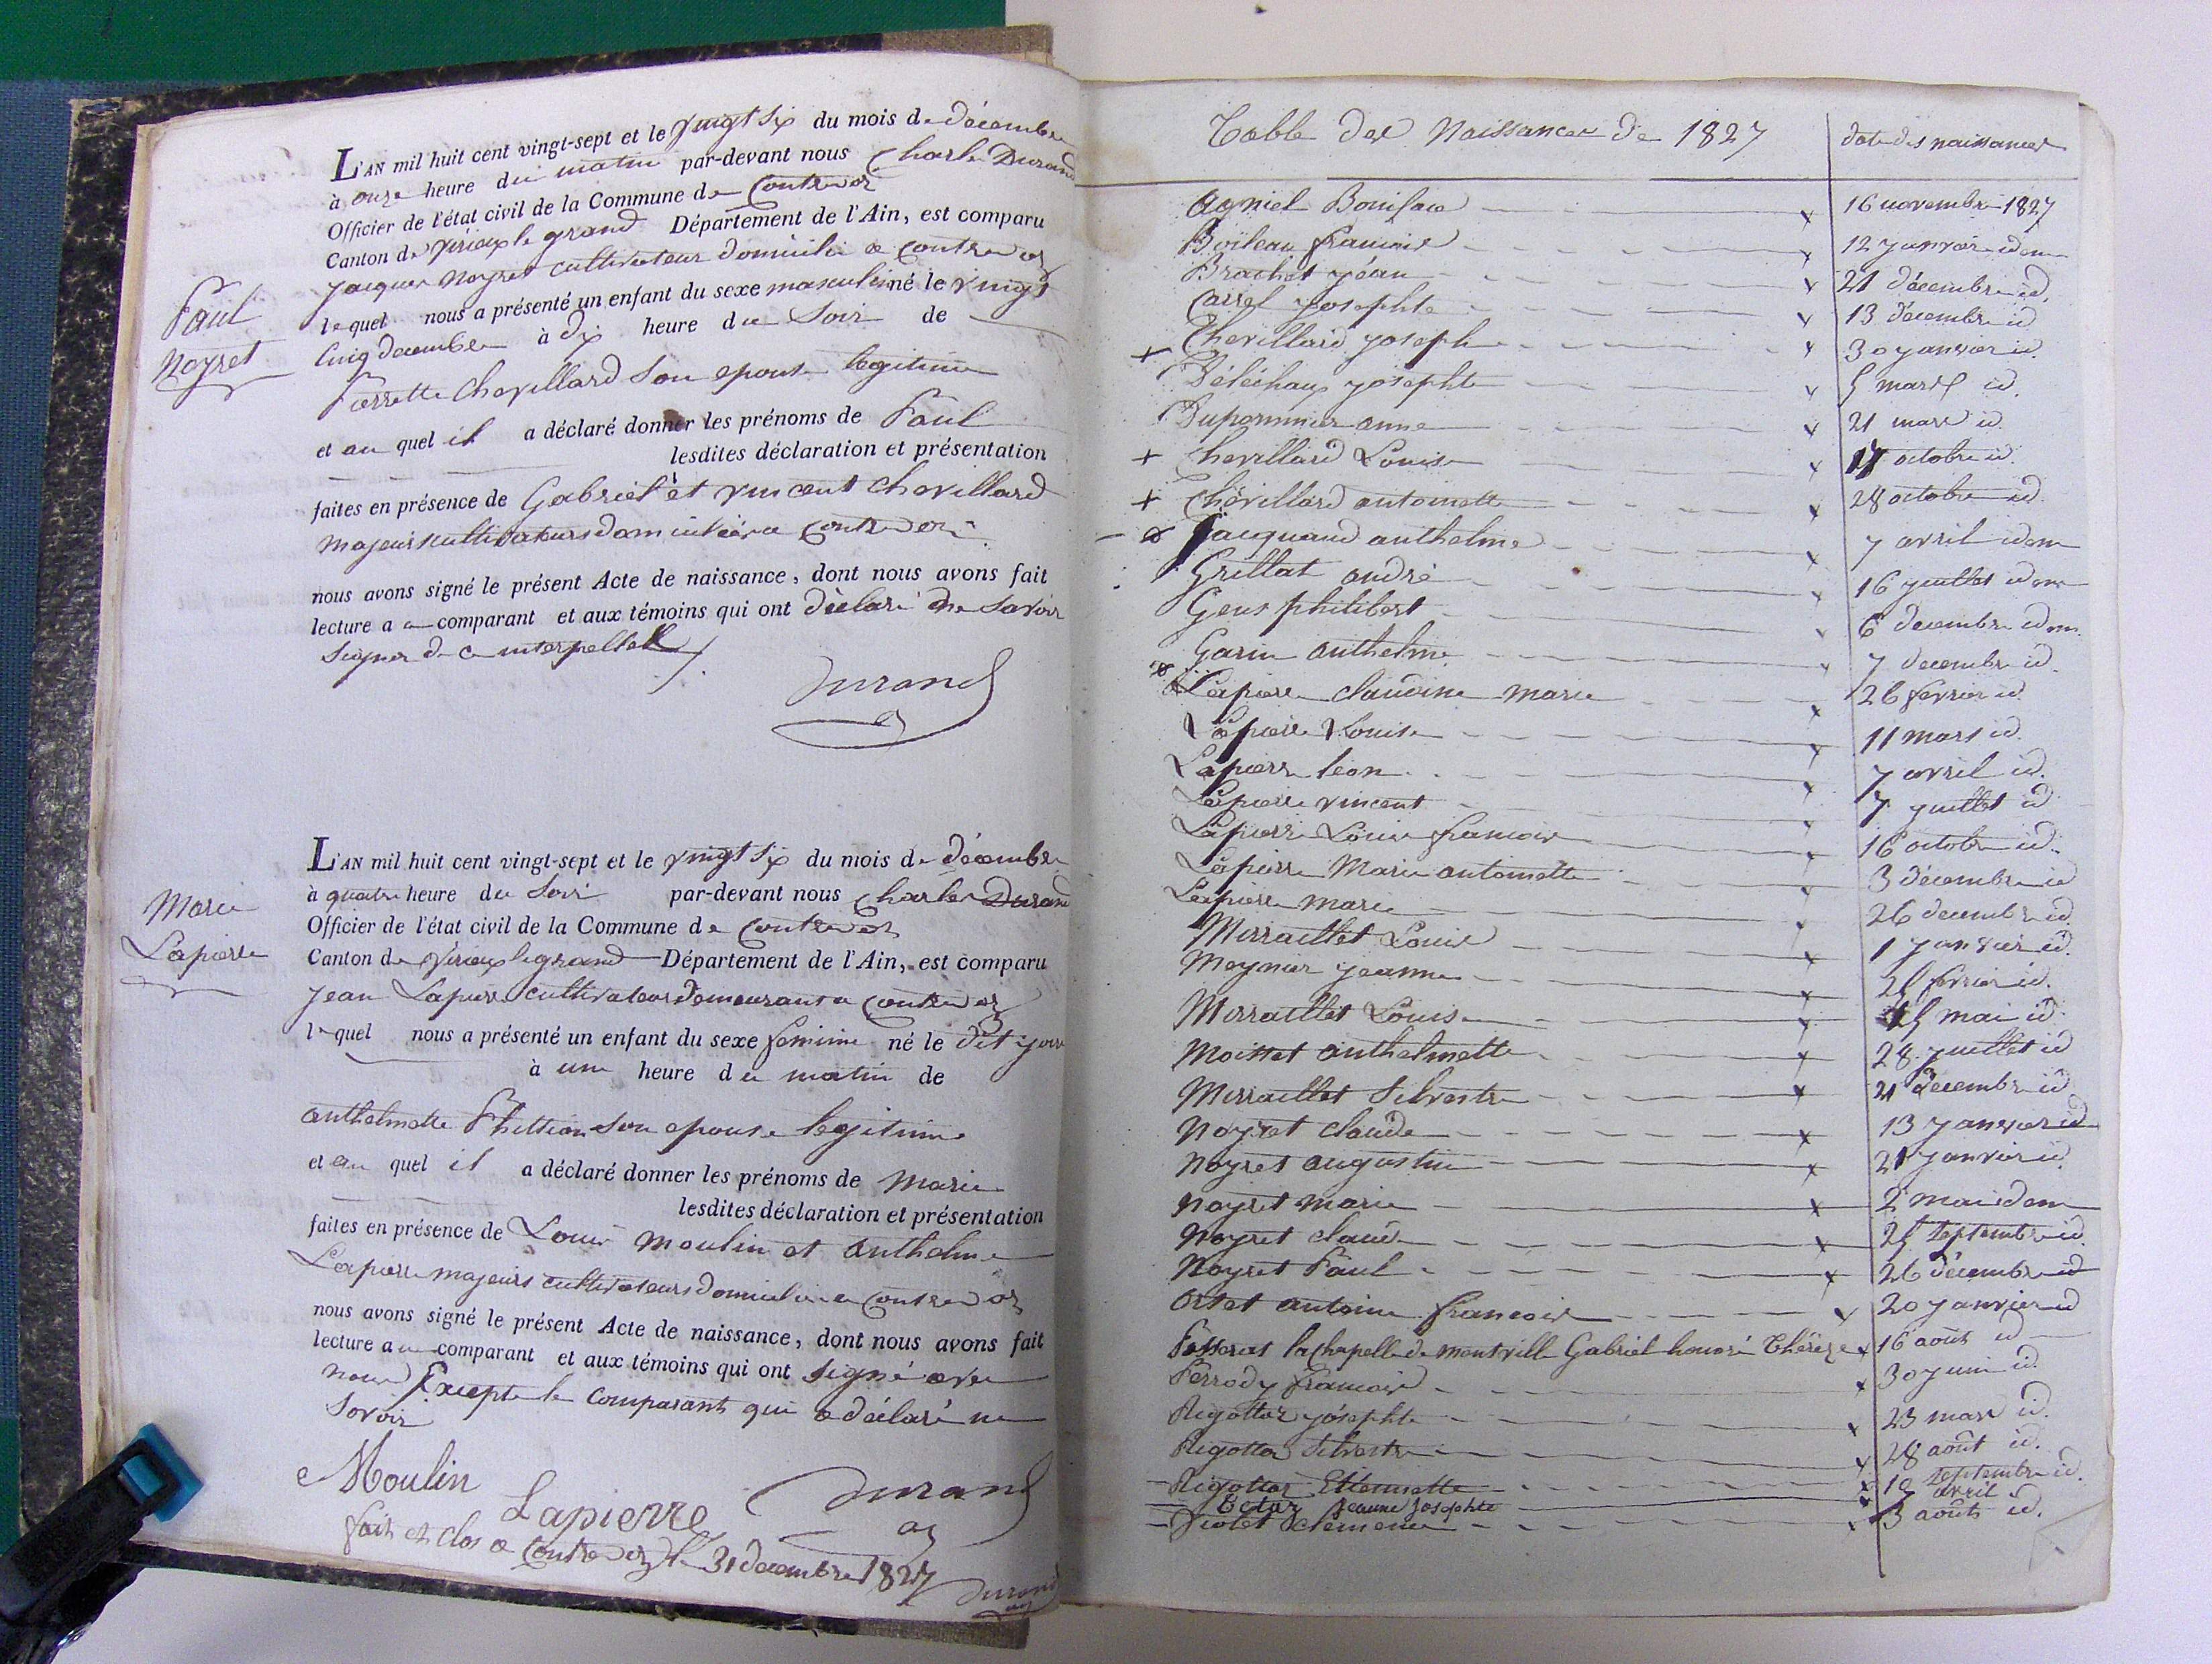 L'AN mil huit cent vingt-sept et le vingt six du mois de décembre
à onze heure du matin par-devant nous Charle Durand
Officier de l'état civil de la Commune de Contrevoz
Canton de virieux le grand Département de l'Ain, est comparu
jacques noyret cultivateur domicilié a contrevoz
lequel nous a présenté un enfant du sexe masculin né le vingt
cinq decembre à dix heure du soir de
Pierrette Chevillard son epouse legitime
et au quel il a déclaré donner les prénoms de Paul
lesdites déclaration et présentation
faites en présence de Gabriel et vincent chevillard
majeurs cultivateurs domiciliés a contrevoz
nous avons signé le présent Acte de naissance, dont nous avons fait
lecture au comparant et aux témoins qui ont déclaré ne savoir
signer de ce interpellé
Durand
Paul
noyret
L'AN mil huit cent vingt-sept et le vingt six du mois de décembre
à quatre heure du soir par-devant nous Charles Durand
Officier de l'état civil de la Commune de Contrevoz
Canton de virieux le grand Département de l'Ain, est comparu
jean Lapierre cultivateur demeurant a contrevoz
lequel nous a présenté un enfant du sexe feminin né le dit jour
à une heure du matin de
anthelmette son epouse legitime
et au quel il a déclaré donner les prénoms de marie
lesdites déclaration et présentation
faites en présence de Louis moulin et anthelme
Lapierre majeurs cultivateurs domiciliés a contrevoz
nous avons signé le présent Acte de naissance, dont nous avons fait
lecture au comparant et aux témoins qui ont signé avec
nous Excepté le comparant qui a déclaré ne
savoir
Marie
Lapierre
Moulin Lapierre Durand
fait et clos a contrevoz le 31 decembre 1827
Durand
Table des Naissances de 1827 date des naissances
agniel Boniface 16 novembre 1827
Boileau francois 12 janvier idem
Brachet jéan 21 décembre id.
Carrel josephte 13 décembre id
+ Chevillard joseph 30 janvier id.
Déléchaux josephte 5 mars id.
Dupommier anne 21 mars id.
+ Chevillard Louise 17 octobre id.
+ Chevillard antoinette 28 octobre id.
Jacquand anthelme 7 avril idem
Grillat andré 16 juillet idem
Gens philibert 6 decembre idem.
Garin anthelme 7 decembre id.
Lapierre claudine marie 26 fevrier id.
Lapierre Louise 11 mars id.
Lapierre leon 7 avril id.
Lapierre vincent 7 juillet id
Lapierre Louis francois 16 octobre id.
Lapierre Marie antoinette 3 décembre id
Lapierre marie 26 decembre id.
Merraillet Louis 1 janvier id.
Meynier jeanne 25 fevrier id.
Merraillet Louise 15 mai id.
Moisset anthelmette 28 juillet id
Merraillet Silvestre 21 décembre id
Noyret claude 13 janvier id
Noyret augustin 21 janvier id.
Noyret marie 2 mai idem
Noyret claude 25 septembre id.
Noyret Paul 26 décembre id
Ortet antoine francois 20 janvier id
Passerat lachapelle de montville Gabriel honoré Thérèze 16 août id
Perrody francois 30 juin id.
Rigottaz josephte 23 mars id.
Rigottaz Silvestre 28 août id.
Rigottaz Etiennette 10 septembre id.
Betaz Jeanne Josephte 7 avril
Violet clemence 3 août id.